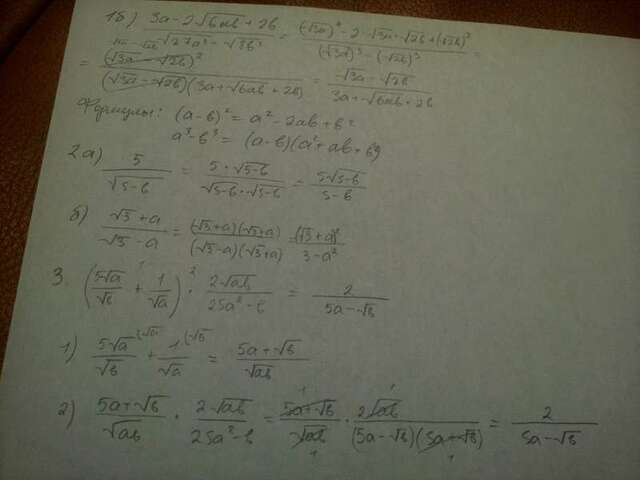 1б) (3a - 2√6ab + 2b)/(√27a³ - √8b³) = ((√3a)² - 2·√3a·√2b + (√2b)²)/((√3a)³ - (√2b)³) =
= (√3a - √2b)²/((√3a - √2b)(3a + √6ab + 2b)) = (√3a - √2b)/(3a + √6ab + 2b)
Формулы: (a - b)² = a² - 2ab + b²
a³ - b³ = (a - b)(a² + ab + b²)
2a) 5/√5-b = (5·√5-b)/(√5-b·√5-b) = 5√5-b/(5-b)
б) (√3 + a)/(√3 - a) = ((√3+a)(√3+a))/((√3-a)(√3+a)) = (√3+a)²/(3-a²)
3. (5√a/√b + 1/√a) · 2√ab/(25a²-b) = 2/(5a-√b)
1) 5√a/√b + 1/√a = (5a+√b)/√ab
2) (5a+√b)/√ab · 2√ab/(25a²-b) = (5a+√b)/√ab · 2√ab/((5a-√b)(5a+√b)) = 2/(5a-√b)